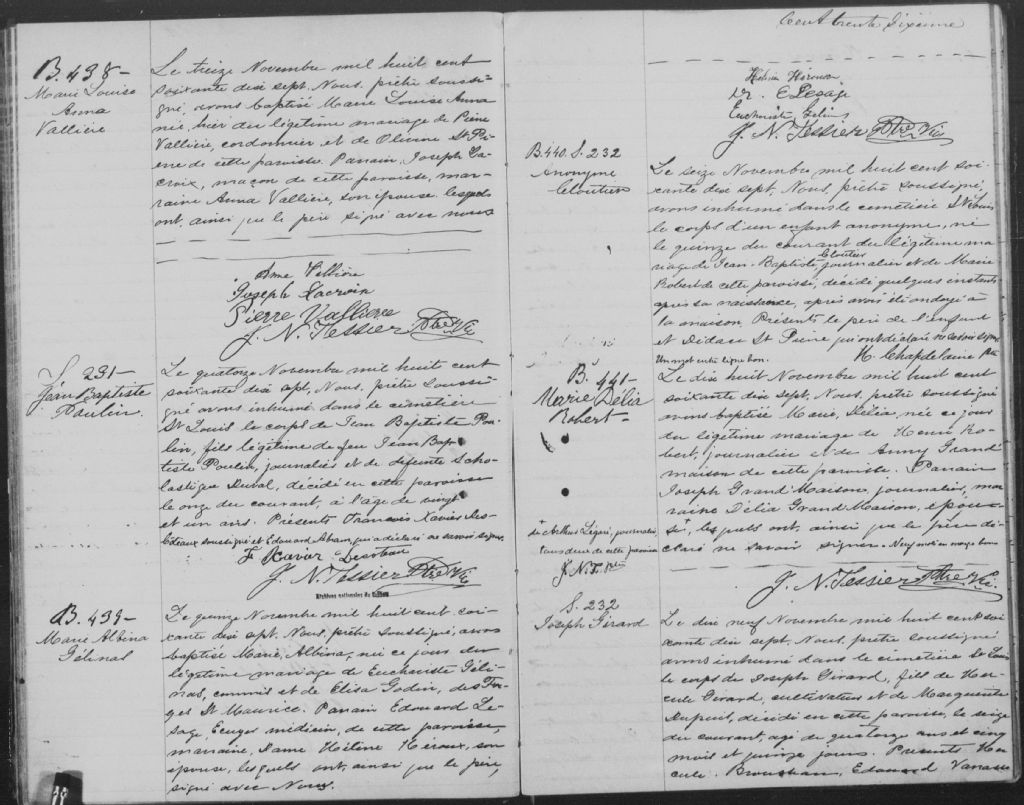 B. 438-
Marie Louise
Anna
Vallière
Le treize Novembre mil huit cent
soixante dix sept, Nous, prêtre soussi-
gné, avons baptisé Marie Louise Anna
née, hier du légitime mariage de Pierre
Vallière, cordonnier et de Olivine St Pi-
erre de cette paroisse. Parrain, Joseph La-
croix, maçon de cette paroisse, mar-
raine Anna Vallière, son épouse lesquels
ont, ainsi que le père signé avec nous
Anna Vallière
Joseph Lacroix
Pierre Vallière
J. N. Tessier Ptre Vic
S. 231-
Jean Baptiste
Poulin.
Le quatorze Novembre mil huit cent
soixante dix sept, Nous, prêtre soussi-
gné avons inhumé dans le cimetière
St Louis le corps de Jean Baptiste Pou-
lin, fils légitime de feu Jean Bap-
tiste Poulin, journalier et de defunte Scho-
lastique Duval, décédé en cette paroisse
le onze du courant, à l'age de vingt
et un ans. Présents Francois Xavier Des-
côteaux soussigné et Edouard Aham, qui a déclaré ne savoir signer
F Xavier
J. N. Tessier Ptre Vic
Archives nationales du Québec
B. 439-
Marie Albina
Gélinas
Le quinze Novembre mil huit cent soi-
xante dix sept, Nous, prêtre soussigné, avons
baptisé Marie, Albina, née ce jour du
légitime mariage de Euchariste Géli-
nas, commis et de Elisa Godin, des For-
ges St Maurice. Parrain Edouard Le-
sage, Ecuyer médecin, de cette paroisse,
marraine, Dame Hélène Heroux, son
épouse, lesquels ont, ainsi que le père,
signé avec Nous.
19
Cent trente sixième
Hélène Héroux
Dr. E Lesage
Euchariste Gélinas
J. N. Tessier Ptre Vic
B. 440. S. 232
Anonyme
Cloutier
Le seize Novembre mil huit cent soi-
xante dix sept, Nous, prêtre soussigné,
avons inhumé dans le cimetière St Louis
le corps d'un enfant anonyme, né
le quinze du courant du légitime ma-
riage de Jean-Baptiste Cloutier journalier et de Marie
Robert de cette paroisse, décédé quelques instants
après sa naissance, après avoir été ondoyé à
la maison. Présents le père de l'enfant
et Didace St Pierre qui ont déclaré ne savoir signer
Un mot entre ligne bon. H. Chapdelaine Ptre
B. 441-
Marie Délia
Robert-
Le dix huit Novembre mil huit cent
soixante dix sept, Nous, prêtre soussigné
avons baptisé Marie, Délia, née ce jour
du légitime mariage de Henri Ro-
bert, journalier et de Anny Grand
maison de cette paroisse. Parrain
Joseph Grand'Maison, journalier, mar
raine Délia Grand Maison, épou-
se, lesquels ont, ainsi que le père dé-
claré ne savoir signer. Neuf mots en marge bons
de Arthur Légaré, journalier,
tous deux de cette paroisse
J. N. T. Ptre
J. N. Tessier Ptre Vic.
S. 232
Joseph Girard
Le dix neuf Novembre mil huit cent soi
xante dix sept, Nous, prêtre soussigné
avons inhumé dans le cimetière St Louis
le corps de Joseph Girard, fils de Her-
cule Girard, cultivateur et de Marguerite
Dupuis, décédé en cette paroisse, le seize
du courant, agé de quatorze ans et cinq
mois et quinze jours. Présents Her-
cule Edouard Vanasse